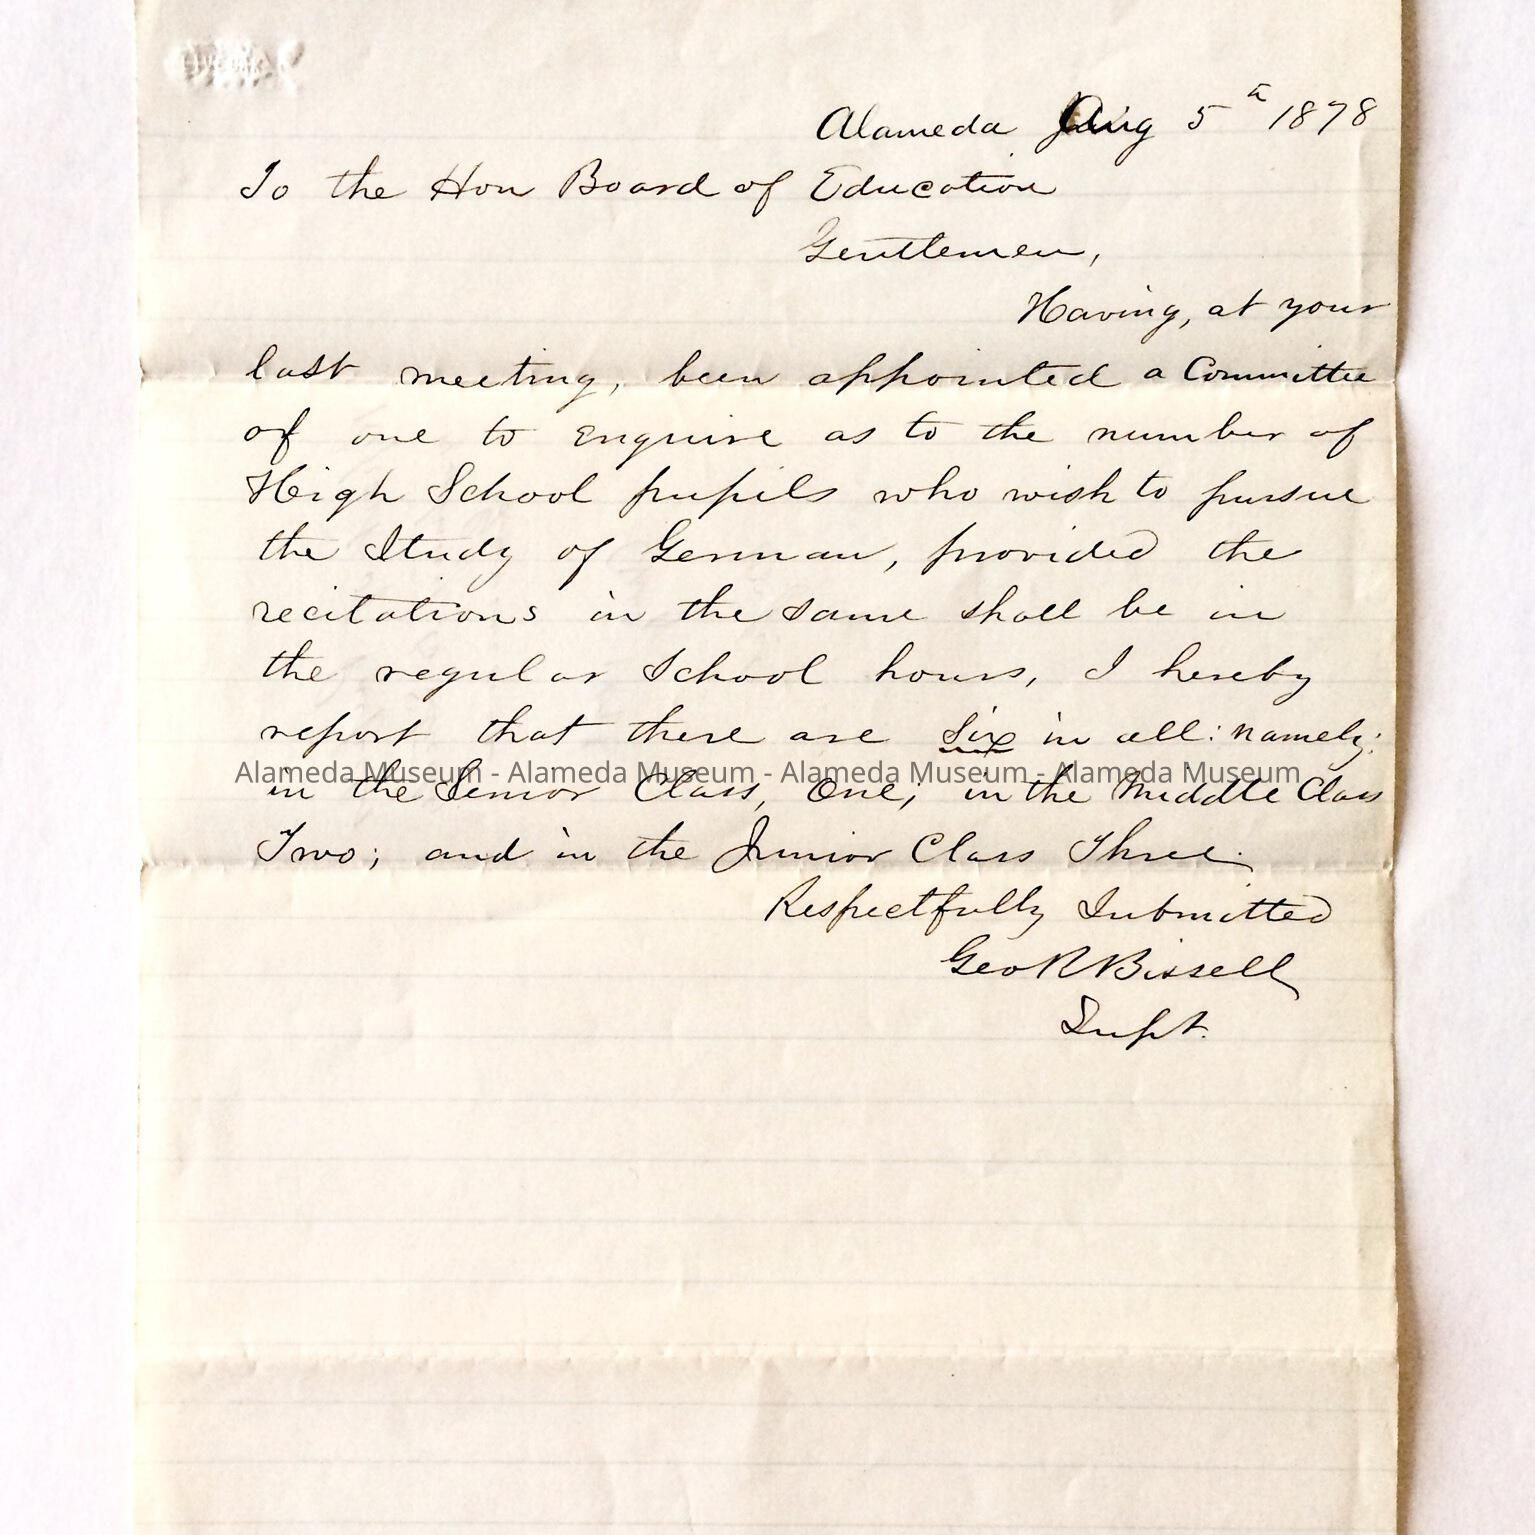 Alameda Aug 5th 1878
To the Hon Board of Education
Gentlemen,
Having, at your
last meeting, been appointed a Committee
of one to enquire as to the number of
High School pupils who wish to pursue
the Study of German, provided the
recitations in the same shall be in
the regular School hours, I hereby
report that there are Six in all: namely;
Alameda Museum - Alameda Museum - Alameda Museum - Alameda Museum
in the Senior Class, One; in the Middle Class
Two; and in the Junior Class Three.
Respectfully Submitted
Geo R Bissell
Supt.